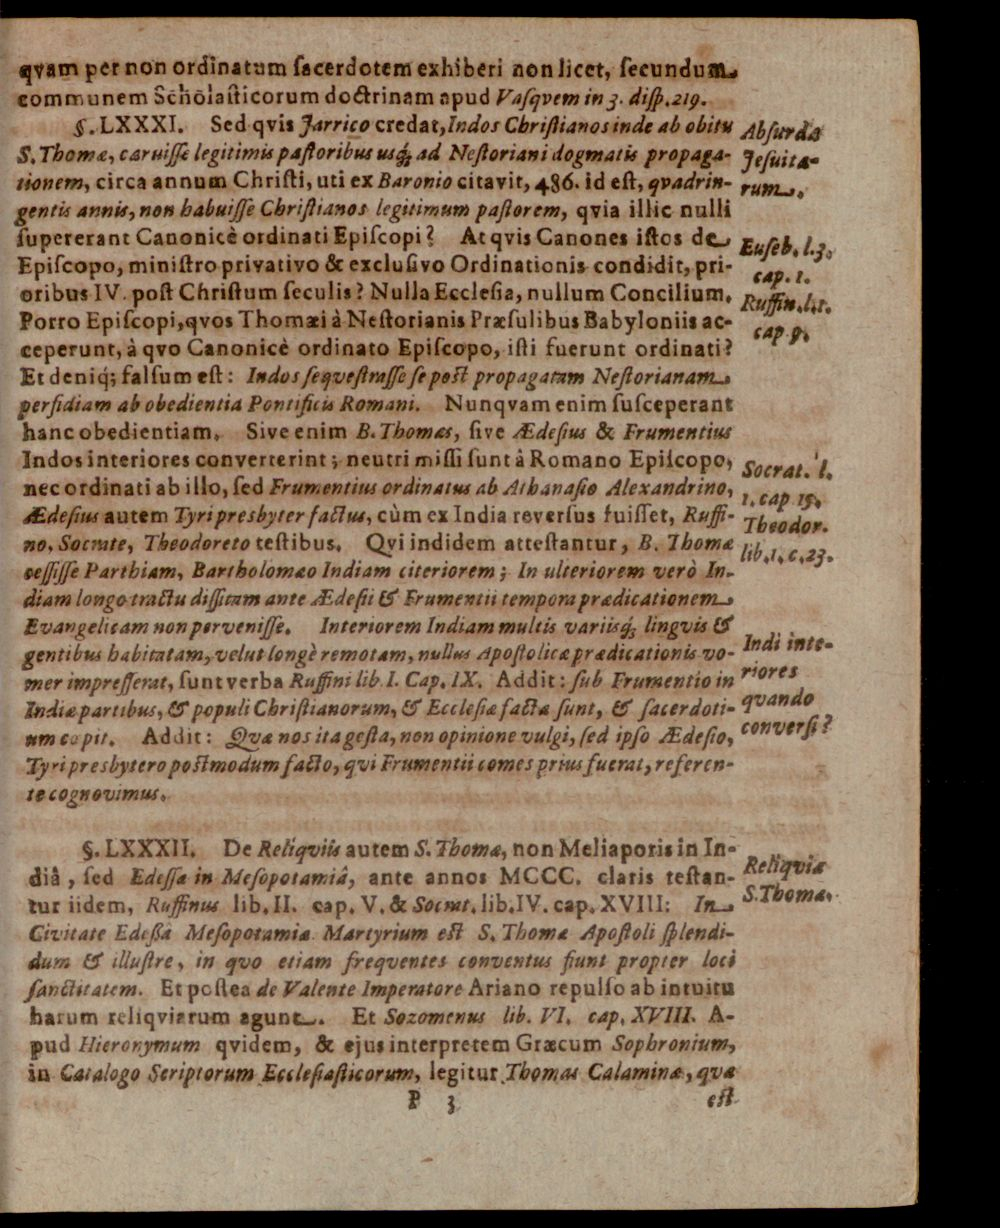 qvam per non ordinatum ſacerdotem exhiberi non licet, ſecundum
communem Scholaſticorum doctrinam apud Vaſqvem in 3. diſp. 219.
§. LXXXI. Sed qvis Jarrico credat, Indos Chriſtianos inde ab obitu
S. Thomæ, caruiſſe legitimis paſtoribus usq́; ad Neſtoriani dogmatis propaga-
tionem, circa annum Chriſti, uti ex Baronio citavit, 486. id eſt, qvadrin-
gentis annis, non habuiſſe Chriſtianos legitimum paſtorem, qvia illic nulli
ſupererant Canonicè ordinati Epiſcopi? At qvis Canones iſtos de
Epiſcopo, miniſtro privativo & excluſivo Ordinationis condidit, pri-
oribus IV. poſt Chriſtum ſeculis? Nulla Eccleſia, nullum Concilium.
Porro Epiſcopi, qvos Thomæi à Neſtorianis Præſulibus Babyloniis ac-
ceperunt, à qvo Canonicè ordinato Epiſcopo, iſti fuerunt ordinati?
Et deniq́; falſum eſt: Indos ſeqveſtraſſe ſe poſt propagatam Neſtorianam
perfidiam ab obedientia Pontificis Romani. Nunqvam enim ſuſceperant
hanc obedientiam. Sive enim B. Thomas, ſive Ædeſius & Frumentius
Indos interiores converterint; neutri miſſi ſunt â Romano Epiſcopo,
nec ordinati ab illo, ſed Frumentius ordinatus ab Athanaſio Alexandrino,
Ædeſius autem Tyri presbyter factus, cùm ex India reverſus fuiſſet, Ruffi-
no, Socrate, Theodoreto teſtibus. Qvi indidem atteſtantur, B. Thomæ
ceſſiſſe Parthiam, Bartholomæo Indiam citeriorem; In ulteriorem verò In-
diam longo tractu diſſitam ante Ædeſii & Frumentii tempora prædicationem
Evangelicam non perveniſſe. Interiorem Indiam multis variisq́; lingvis &
gentibus habitatam, velut longè remotam, nullus Apoſtolicæ prædicationis vo-
mer impreſſerat, ſunt verba Ruffini lib. I. Cap. IX. Addit: ſub Frumentio in
Indiæ partibus, & populi Chriſtianorum, & Eccleſiæ factæ ſunt, & ſacerdoti-
um cœpit. Addit: Qvæ nos ita geſta, non opinione vulgi, ſed ipſo Ædeſio,
Tyri presbytero poſtmodum facto, qvi Frumentii comes prius fuerat, referen-
te cognovimus.
§. LXXXII. De Reliqviis autem S. Thomæ, non Meliaporis in In-
diâ, ſed Edeſſæ in Meſopotamiâ, ante annos MCCC. claris teſtan-
tur iidem, Ruffinus lib. II. cap. V. & Socrat. lib. IV. cap. XVIII: In
Civitate Edeßâ Meſopotamiæ Martyrium eſt S. Thomæ Apoſtoli ſplendi-
dum & illuſtre, in qvo etiam freqventes conventus fiunt propter loci
ſanctitatem. Et poſtea de Valente Imperatore Ariano repulſo ab intuitu
harum reliqviarum agunt. Et Sozomenus lib. VI. cap. XVIII. A-
pud Hieronymum qvidem, & ejus interpretem Græcum Sophronium,
in Catalogo Scriptorum Eccleſiaſticorum, legitur Thomas Calaminæ, qvæ
P 3 eſt
Abſurda
Jeſuita-
rum.
Euſeb. l. 3.
cap. 1.
Ruffin. l. 1.
cap. 9.
Socrat. l.
1. cap. 15.
Theodor.
lib. 1. c. 23.
Indi inte-
riores
quando
converſi?
Reliqviæ
S. Thomæ.